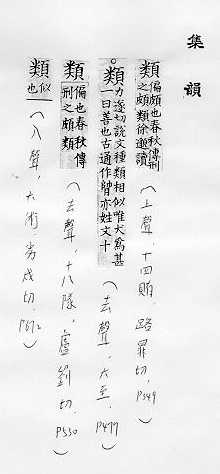 集韻
類 偏頗也春秋傳刑
之頗類徐邈讀
（上聲，十四賄，路罪切，P349）
類 力遂切說文種類相似唯犬爲甚
一曰善也古通作𦟀亦姓文十
（去聲，六至，P477）
類 偏也春秋傳
刑之頗類
（去聲，十八隊，盧對切，P530）
類 似
也
（入聲，六術，劣戌切，P672）